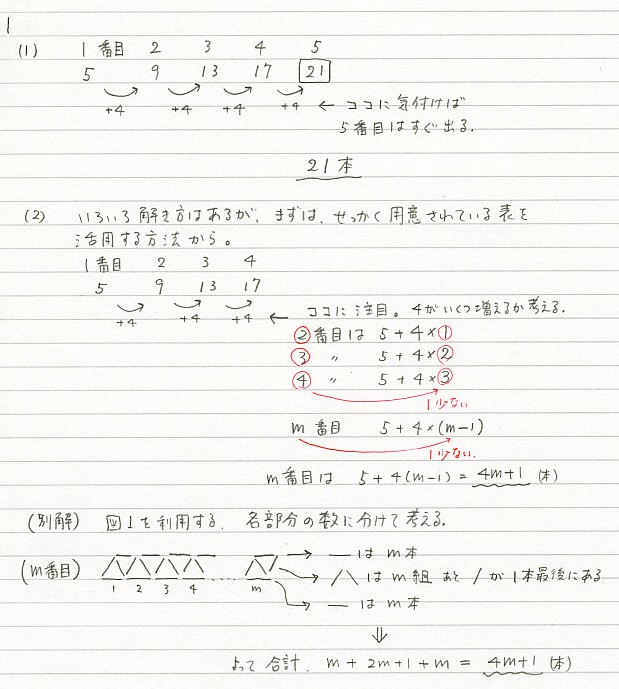 1
(1) 1番目 2 3 4 5
5 9 13 17 21
+4 +4 +4 +4 ← ココに気付けば
5番目はすぐ出る.
21本
(2) いろいろ解き方はあるが、まずは、せっかく用意されている表を
活用する方法から。
1番目 2 3 4
5 9 13 17
+4 +4 +4 ← ココに注目。4がいくつ増えるか考える.
②番目は 5+4×①
③ 〃 5+4×②
④ 〃 5+4×③
1少ない
m番目 5+4×(m-1)
1少ない.
m番目は 5+4(m-1) = 4m+1 (本)
(別解) 図1を利用する. 各部分の数に分けて考える.
(m番目) → ― は m本
1 2 3 4 ‥‥ m → /\ は m組 あと / が 1本最後にある
→ ― は m本
⇓
よって 合計. m+2m+1+m = 4m+1 (本)